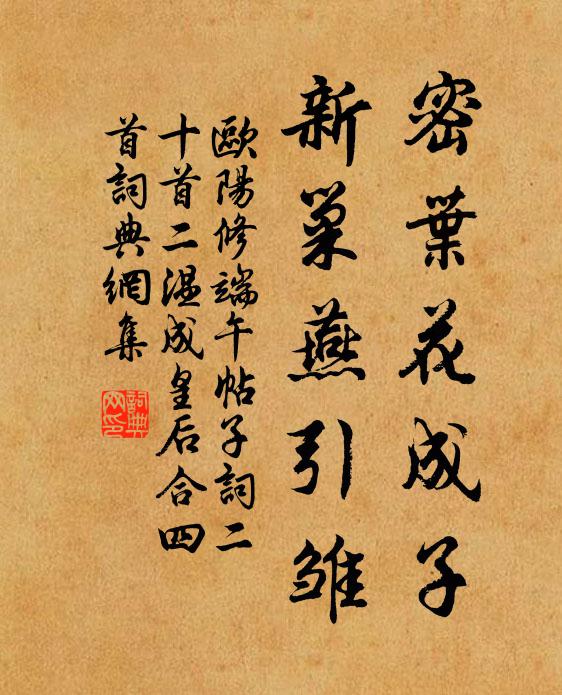 密葉花成子
新巢燕引雛
歐陽修端午帖子詞二
十首二溫成皇后合四
首詞典網集
詞典
网印